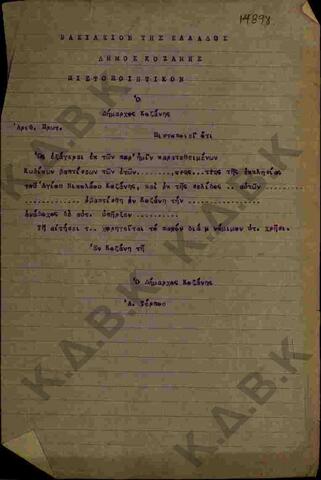 14898
ΒΑΣΙΛΕΙΟΝ ΤΗΣ ΕΛΛΑΔΟΣ
ΔΗΜΟΣ ΚΟΖΑΝΗΣ
ΠΙΣΤΟΠΟΙΗΤΙΚΟΝ
Ο
Δήμαρχος Κοζάνης
Αριθ. Πρωτ.
Πιστοποιεῖ ὅτι
Ὡς ἐξάγεται ἐκ τῶν παρ'ἡμῖν κατατεθειμένων
Κωδίκων βαπτίσεων τῶν ἐτῶν..........τῆς ἐκκλησίας
τοῦ Ἁγίου Νικολάου Κοζάνης, καί ἐκ τῆς σελίδος .. αὐτῶν ........
.............. ἐβαπτίσθη ἐν Κοζάνῃ τήν ............
ἀνάδοχος δέ αὐτ. ὑπῆρξεν..........
Τῇ αἰτήσει τ.. χορηγεῖται τό παρόν διά νόμιμον χρῆσι.
Ἐν Κοζάνῃ τῇ
Ὁ Δήμαρχος Κοζάνης
Κ.Δ.Β.Κ
Κ.Δ.Β.Κ
Κ.Δ.Β.Κ